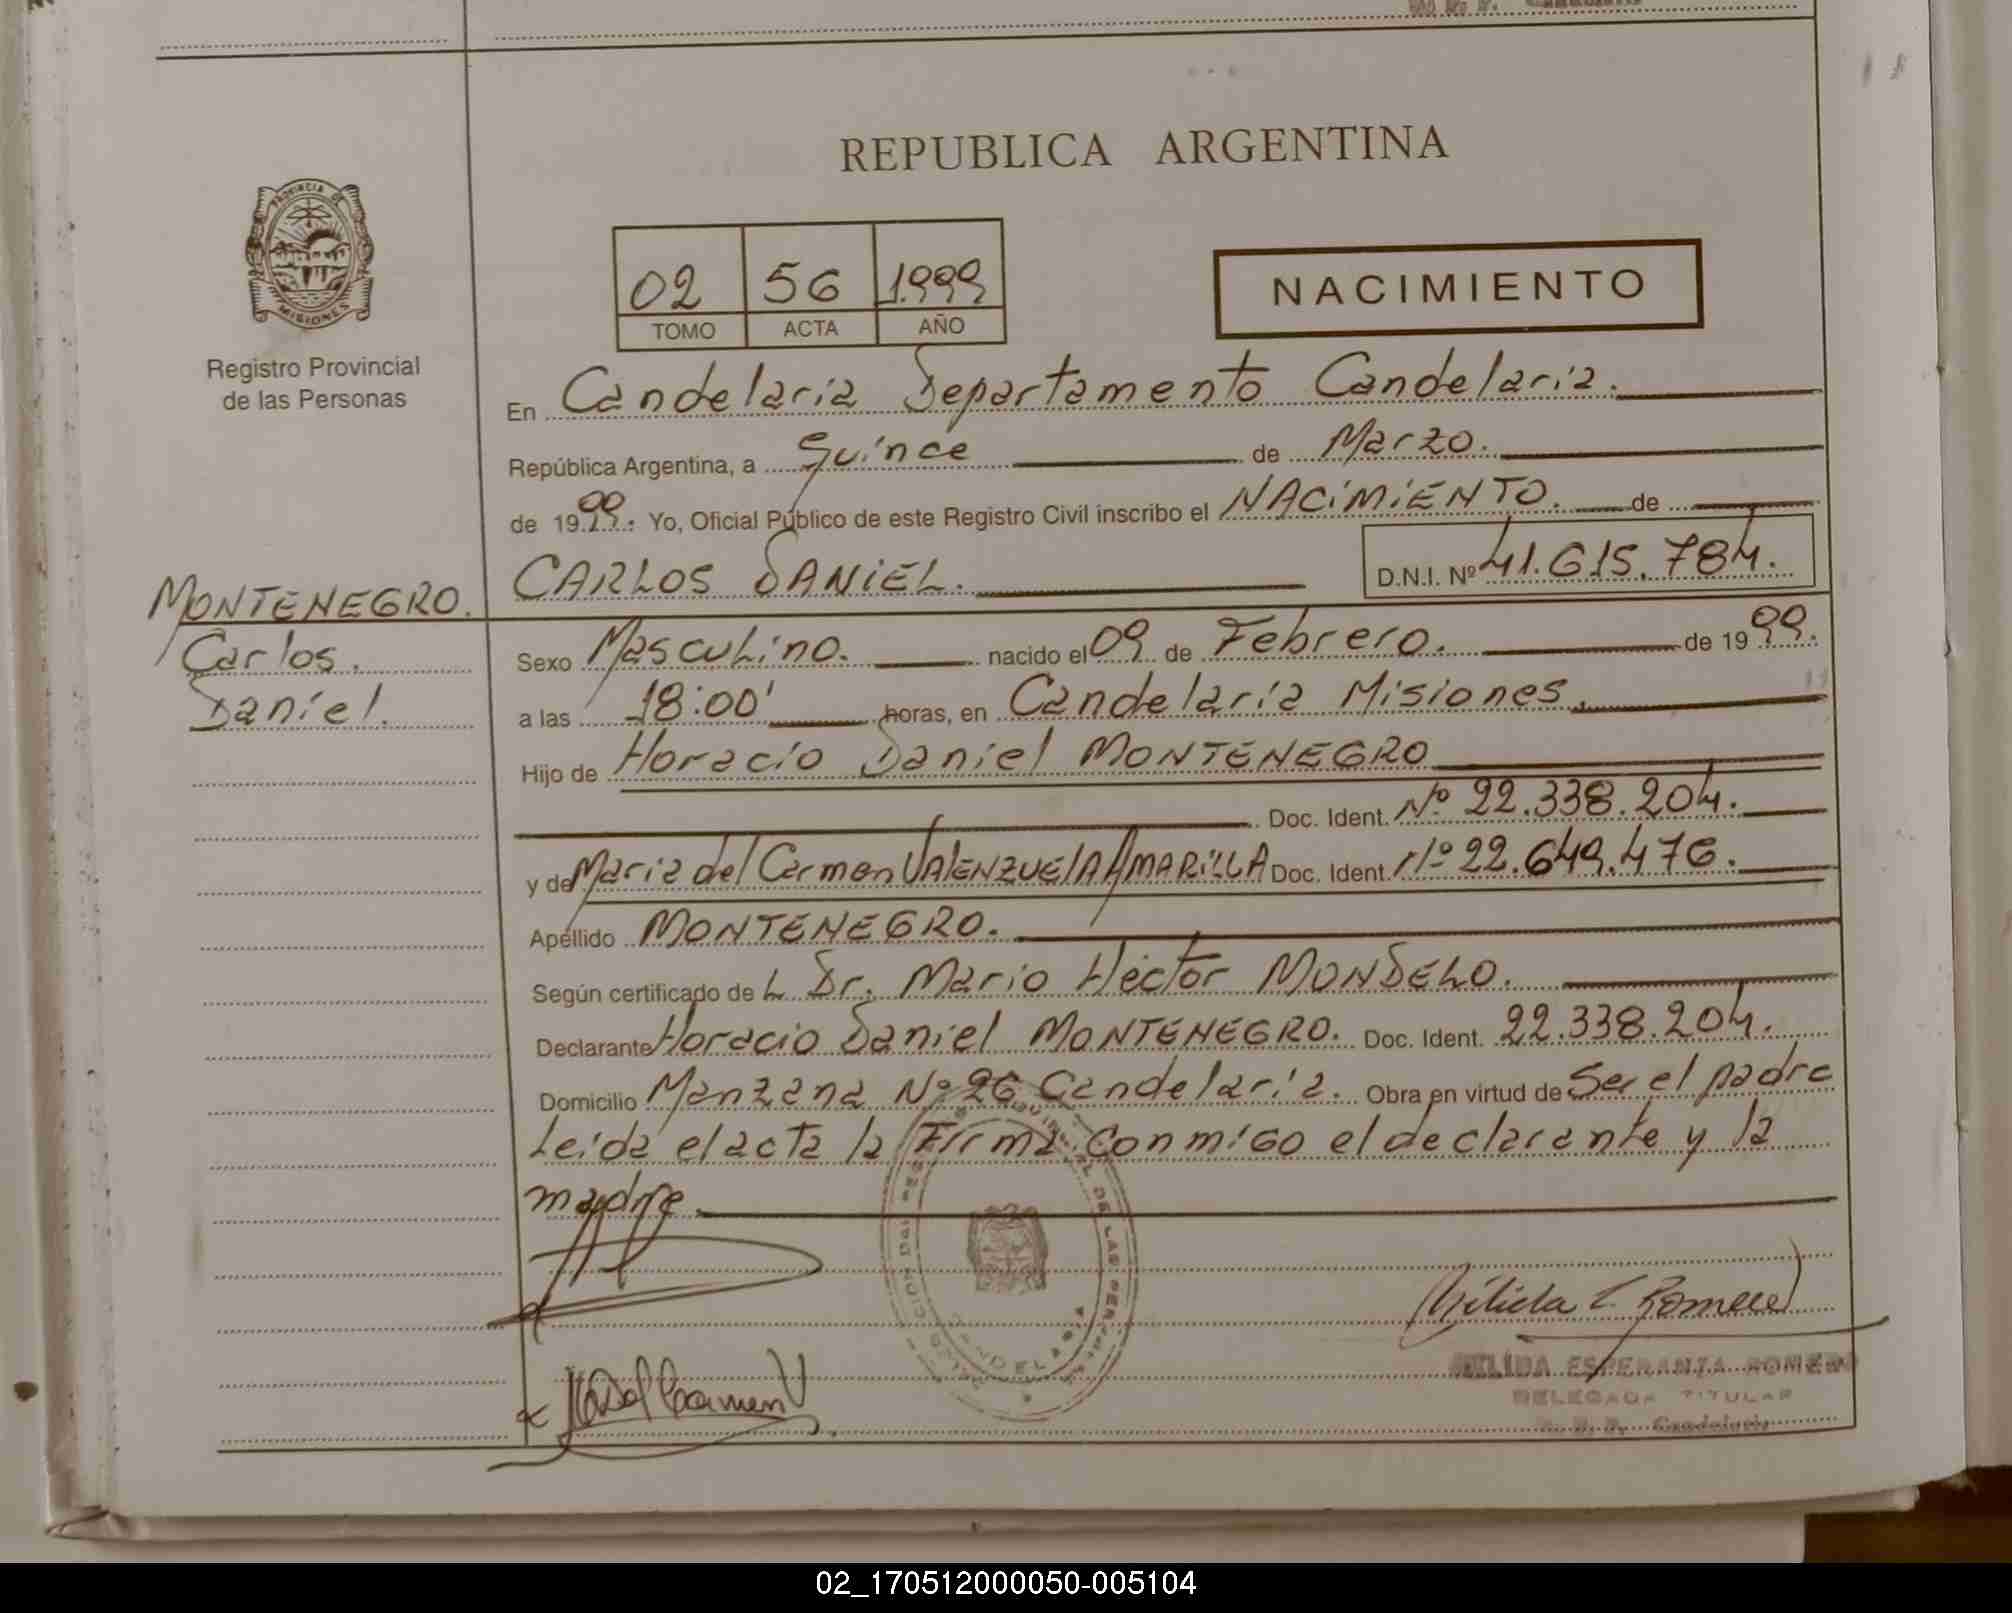 REPUBLICA ARGENTINA
PROVINCIA DE
MISIONES
Registro Provincial
de las Personas
02 56 1.999
TOMO ACTA AÑO
NACIMIENTO
En Candelaria Departamento Candelaria.
República Argentina, a Quince de Marzo.
de 1999. Yo, Oficial Público de este Registro Civil inscribo el NACIMIENTO. de
CARLOS DANIEL. D.N.I. Nº 41.615.784.
MONTENEGRO.
Carlos.
Daniel.
Sexo Masculino. nacido el 09 de Febrero. de 1999.
a las 18:00' horas, en Candelaria Misiones.
Hijo de Horacio Daniel MONTENEGRO
Doc. Ident. Nº 22.338.204.
y de Maria del Carmen VALENZUELA AMARILLA Doc. Ident. Nº 22.649.476.
Apellido MONTENEGRO.
Según certificado de L Dr. Mario Héctor MONDELO.
Declarante Horacio Daniel MONTENEGRO. Doc. Ident. 22.338.204.
Domicilio Manzana Nº 26 Candelaria. Obra en virtud de Ser el padre
Leida el acta la Firma Conmigo el declarante y la
madre.
Ma Del Carmen V
NELIDA ESPERANZA ROMERO
DELEGADA TITULAR
R. P. P. Candelaria
02_170512000050-005104